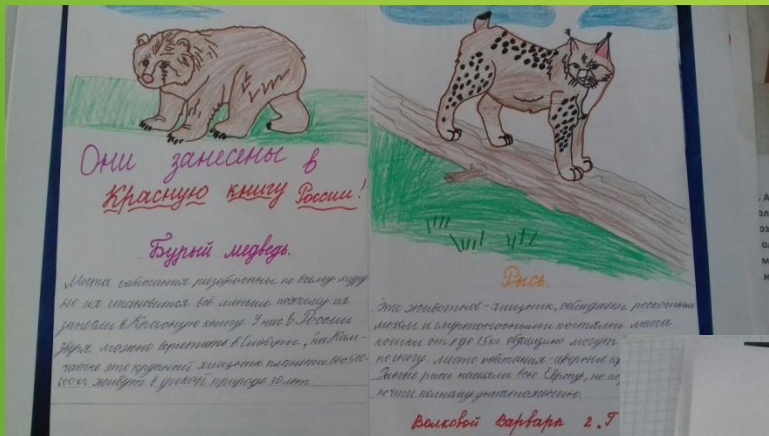 Они занесены в
Красную книгу России!
Бурый медведь.
Места обитания разбросаны по всему миру
но их становится всё меньше поэтому их
занесли в Красную книгу. У нас в России
зверя можно встретить в Сибири, на Кам-
чатке это крупный хищник планеты вес 500-
600 кг живут в дикой природе 30 лет
Рысь.
Это животное - хищник, обладает роскошным
мехом и смертоносными когтями масса
кошки от где 15кг могут
место обитания
рыси населяли всю Европу, но
почти полному уничтожению.
Волковой Варвары 2 "Г